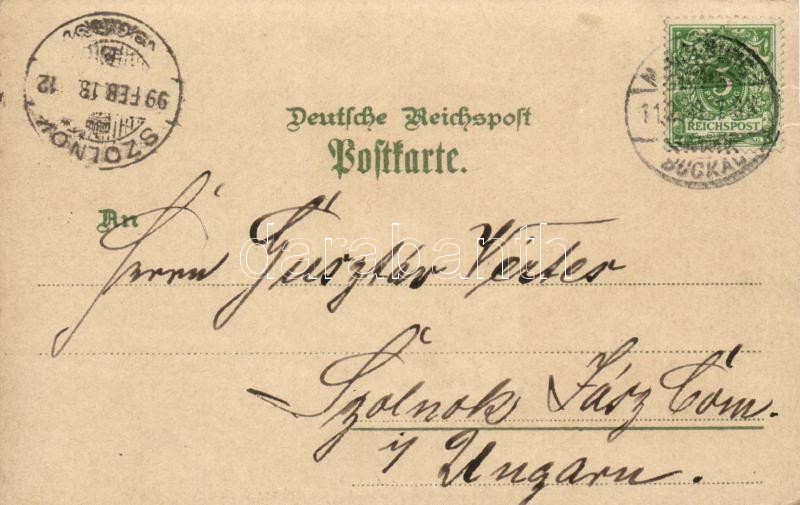 SZOLNOK
99 FEB. 13.
12
5
REICHSPOST
BUCKAU
Deutsche Reichspost
Postkarte.
An
Herrn Gusztáv Vértes
Szolnok Jász Com.
i/ Ungarn.
darabanth